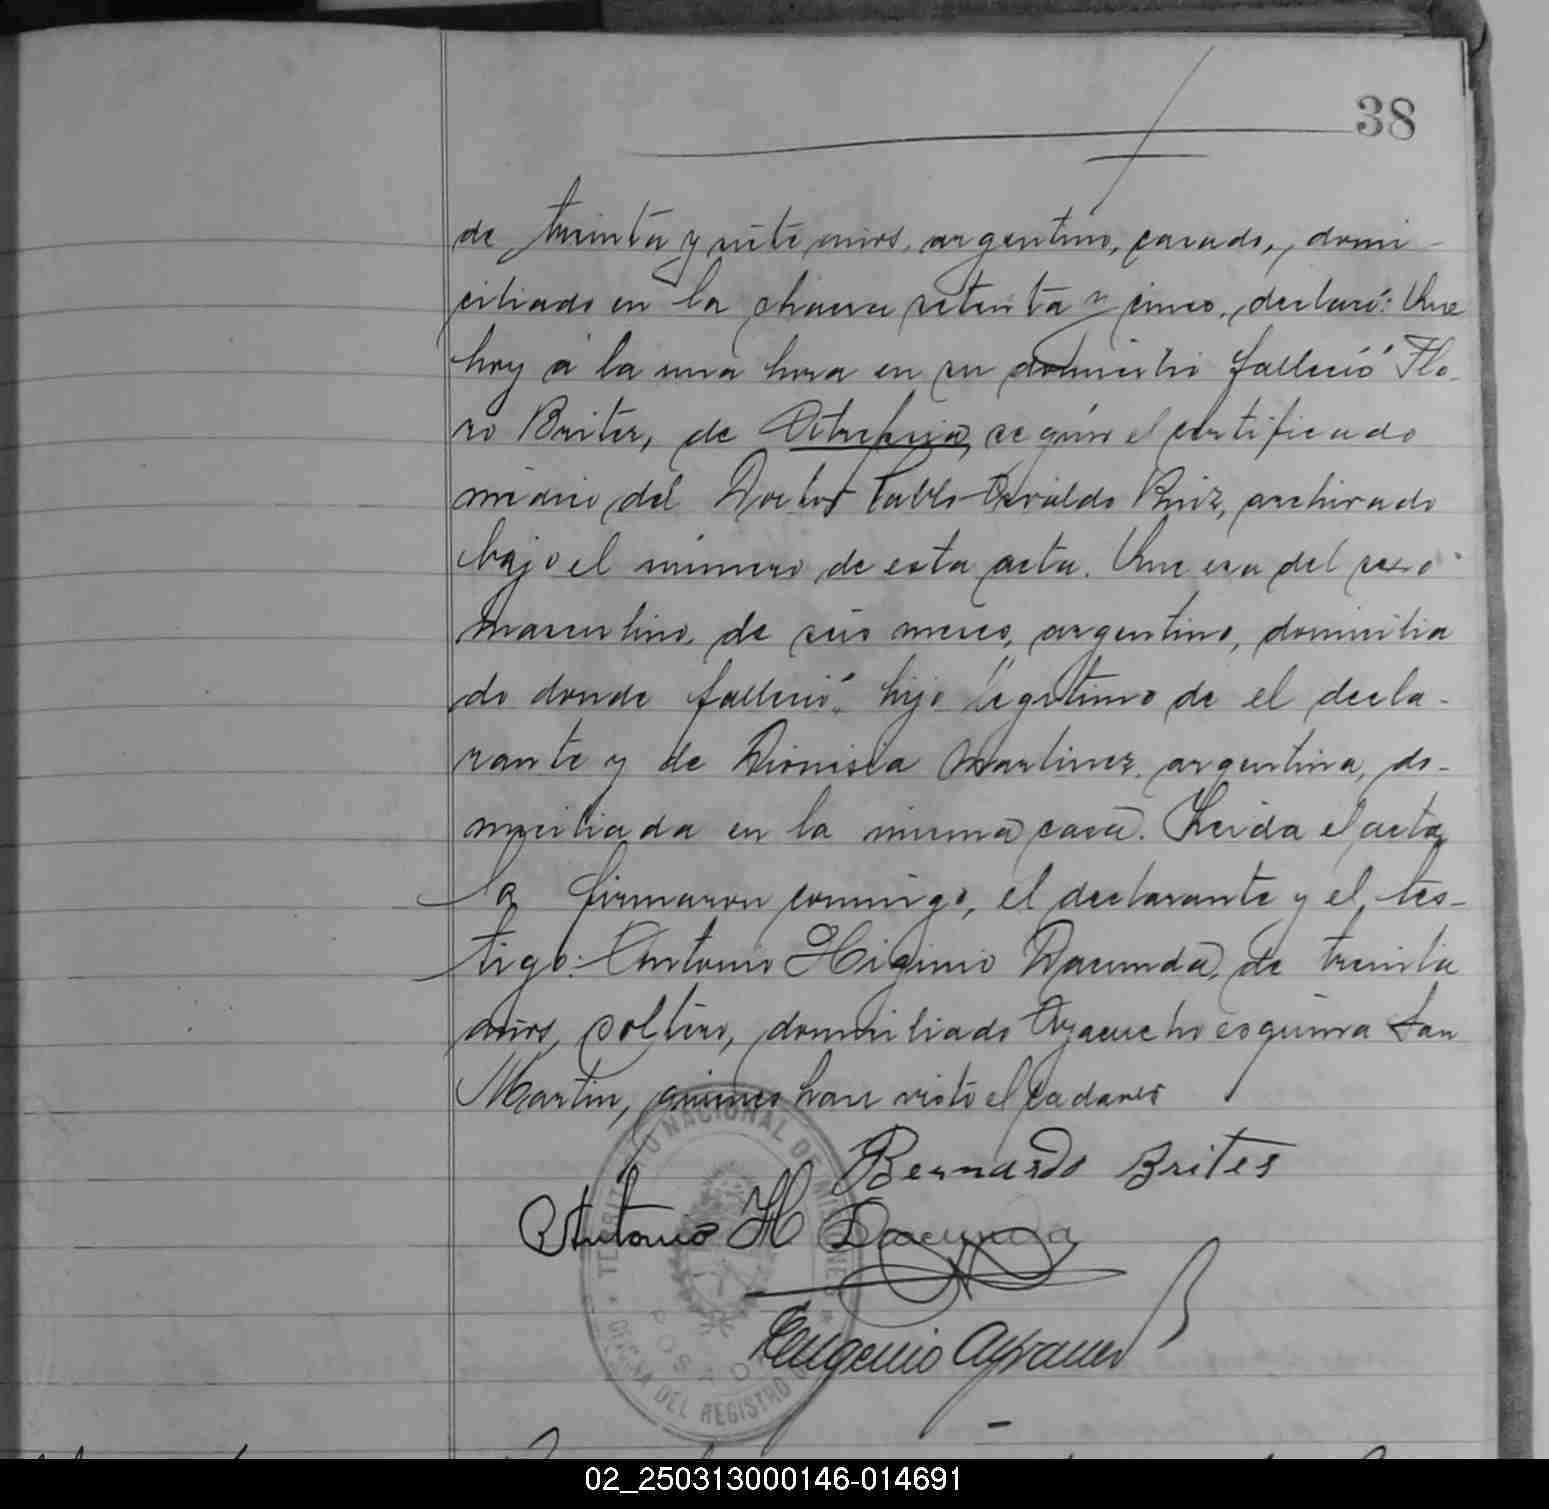 38
de treinta y siete años, argentino, casado, domi-
ciliado en la chacra setenta y cinco, declaró: Que
hoy á la una hora en su domicilio falleció Flo-
ro Brites, de Atrepsia, según el certificado
médico del Doctor Pablo Osvaldo Ruiz, archivado
bajo el número de esta acta. Que era del sexo
masculino, de seis meses, argentino, domicilia
do donde falleció, hijo legítimo de el decla-
rante y de Dionisia Martinez, argentina, do-
miciliada en la misma casa. Leida el acta
la firmaron conmigo, el declarante y el tes-
tigo: Antonio Higinio Dacunda, de treinta
años, soltero, domiciliado Ayacucho esquina San
Martin, quienes han visto el cadaver
Bernardo Brites
Antonio H Dacunda
Eugenio
TERRITORIO NACIONAL DE MISIONES
POSADAS
OFICINA DEL REGISTRO
02_250313000146-014691